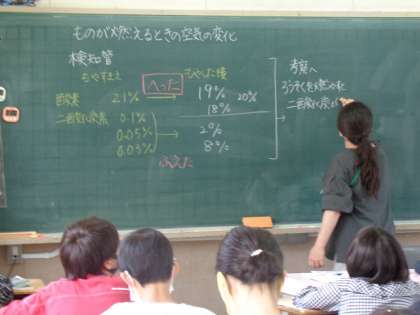 ものが燃えるときの空気の変化
検知管
もやすまえ
へった
もやした後
酸素
21%
19% 20%
18%
二酸化炭素
0.1%
0.05%
0.03%
2%
8%
ふえた
考察へ
ろうそくを燃やすと
二酸化炭素が